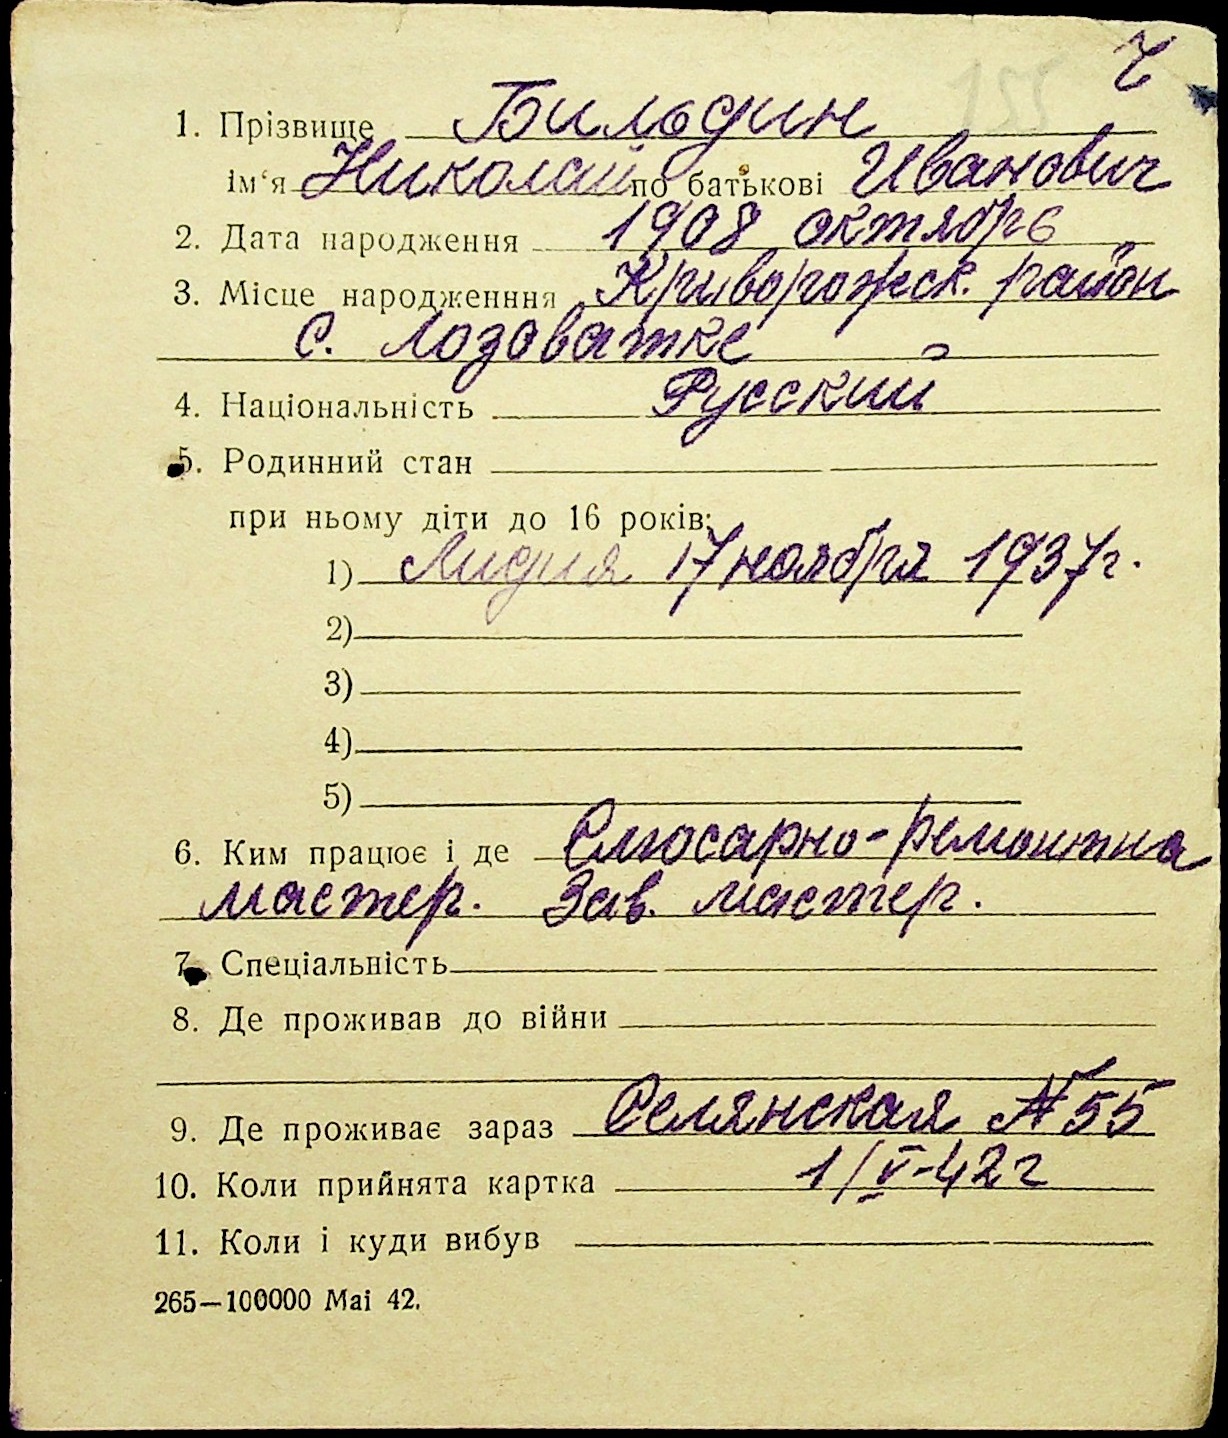 155 Ч
1. Прізвище Бильдин
ім‘я Николай по батькові Иванович
2. Дата народження 1908 октябрь
3. Місце народженння Криворожск. район
с. Лозоватке
4. Національність Русский
5. Родинний стан
при ньому діти до 16 років:
1) Лидия 17 ноября 1937г.
2)
3)
4)
5)
6. Ким працює і де Слюсарно-ремонтна
мастер. Зав. мастер.
7. Спеціальність
8. Де проживав до війни
9. Де проживає зараз Селянская № 55
10. Коли прийнята картка 1/V-42г
11. Коли і куди вибув
265—100000 Mai 42.